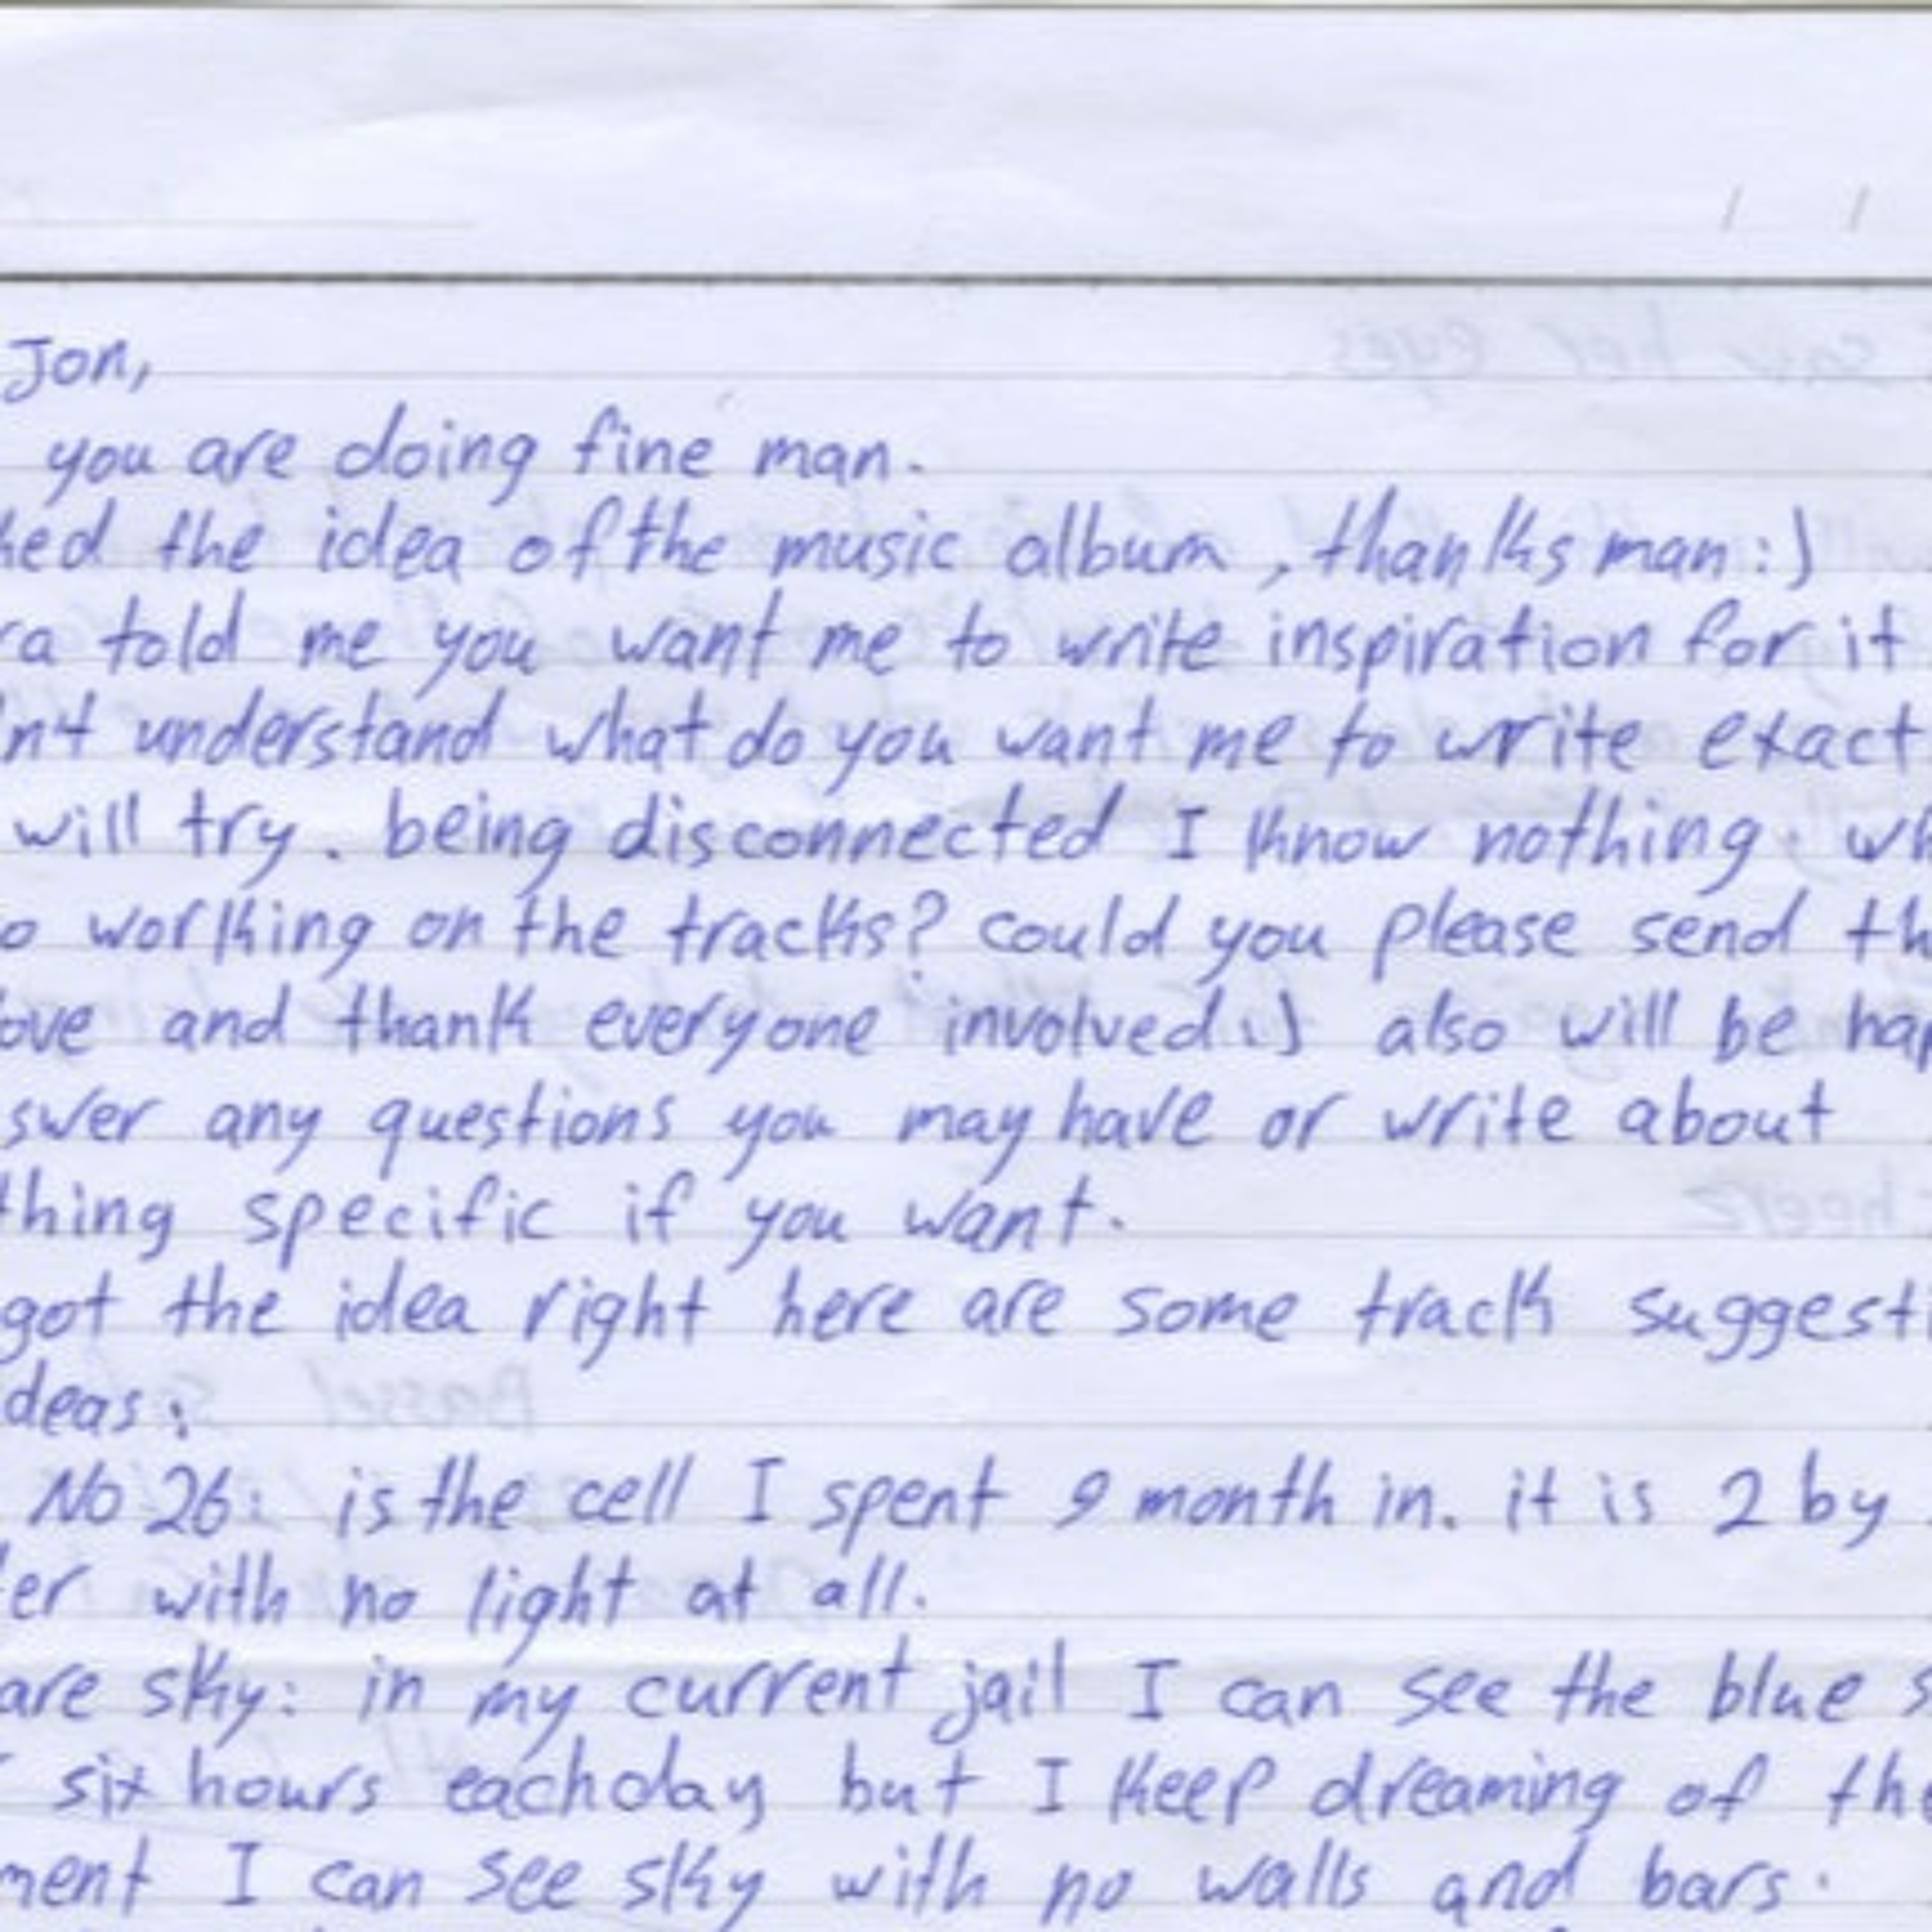 Jon,
you are doing fine man.
ked the idea of the music album, thanks man :)
ra told me you want me to write inspiration for it
nt understand what do you want me to write exact
will try. being disconnected I know nothing. wh
o working on the tracks? could you please send th
ove and thank everyone involved :) also will be hap
swer any questions you may have or write about
thing specific if you want.
got the idea right here are some track suggesti
deas:
No 26: is the cell I spent 9 month in. it is 2 by
er with no light at all.
are sky: in my current jail I can see the blue s
six hours each day but I keep dreaming of the
ment I can see sky with no walls and bars.